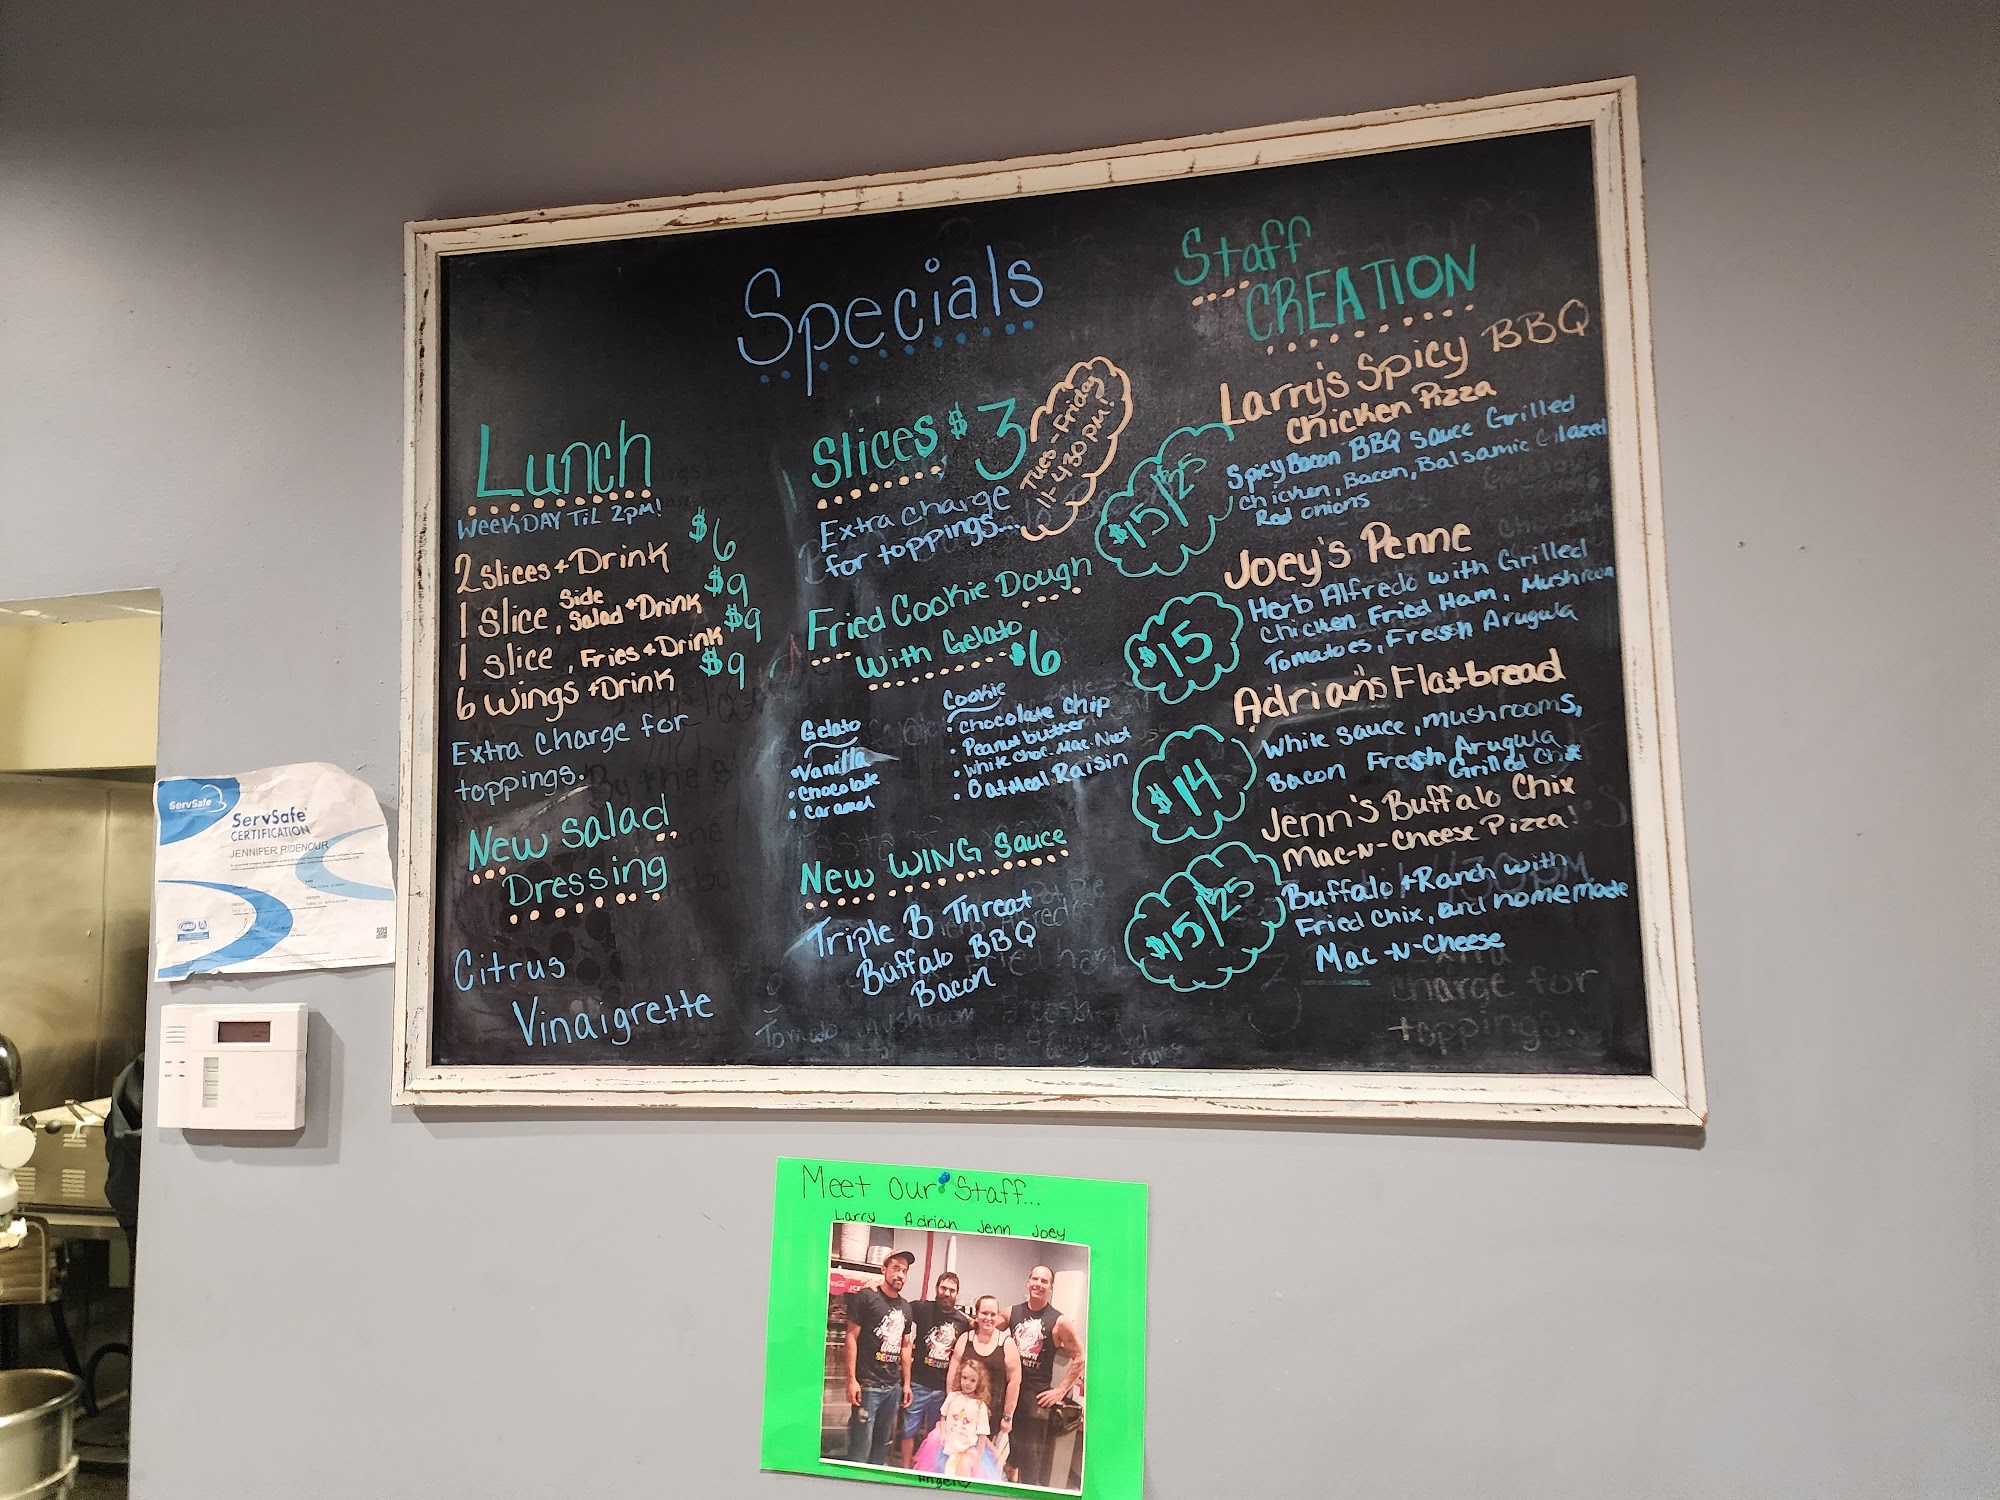 Specials
Lunch
WEEKDAY TiL 2pm!
2 slices + Drink $6
1 slice, Side Salad + Drink $9
1 slice, Fries + Drink $9
6 Wings + Drink $9
Extra charge for
toppings.
New Salad
Dressing
Citrus
Vinaigrette
Slices $3
Tues-Friday
11-430 PM!
Extra charge
for toppings...
Fried Cookie Dough
With Gelato
$6
Gelato
• Vanilla
• Chocolate
• Caramel
Cookie
• Chocolate Chip
• Peanut butter
• White Choc. Mac. Nut
• Oatmeal Raisin
New WING Sauce
Triple B Threat
Buffalo BBQ
Bacon
Staff
CREATION
Larry's Spicy BBQ
Chicken Pizza
$15/$25
Spicy Bacon BBQ Sauce Grilled
Chicken, Bacon, Balsamic Glazed
Red onions
Joey's Penne
$15
Herb Alfredo with Grilled
Chicken Fried Ham, Mushroom
Tomatoes, Fresh Arugula
Adrian's Flatbread
$14
White sauce, mushrooms,
Bacon Fresh Arugula
Grilled Chix
Jenn's Buffalo Chix
Mac-N-Cheese Pizza!
$15/$25
Buffalo + Ranch with
Fried Chix, and homemade
Mac-N-Cheese
charge for
toppings.
ServSafe
ServSafe
CERTIFICATION
JENNIFER RIDENOUR
Meet our Staff...
Larry Adrian Jenn Joey
SECURITY